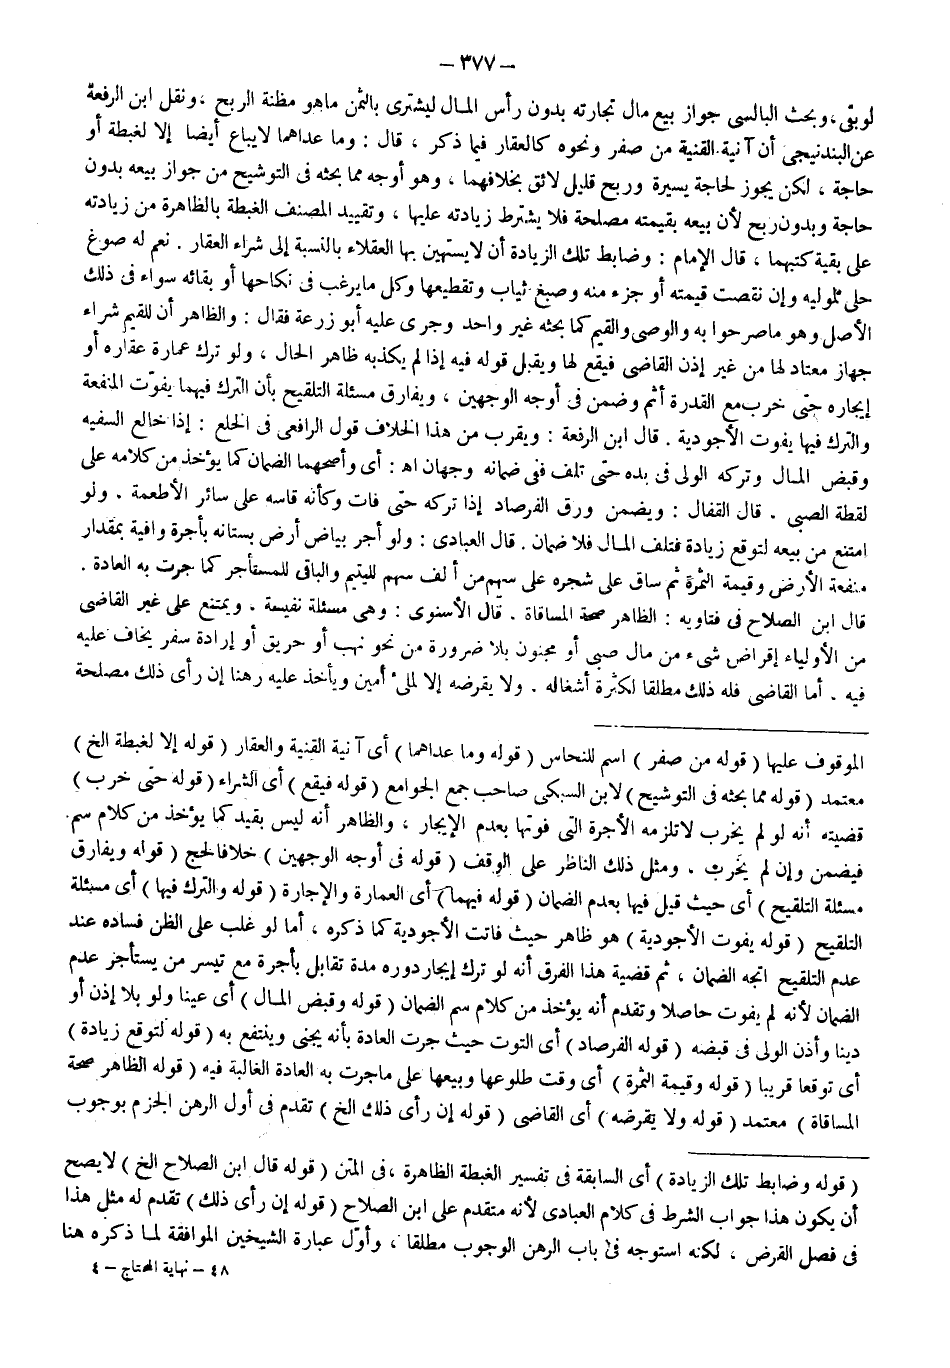 — ٣٧٧ —
لوبقى، وبحث البالسى جواز بيع مال تجارته بدون رأس المال ليشترى بالثمن ماهو مظنة الربح ، ونقل ابن الرفعة
عن البندنيجى أن آنية القنية من صفر ونحوه كالعقار فيما ذكر ، قال : وما عداهما لايباع أيضا إلا لغبطة أو
حاجة ، لكن يجوز لحاجة يسيرة وربح قليل لائق بخلافهما ، وهو أوجه مما بحثه فى التوشيح من جواز بيعه بدون
حاجة وبدون ربح لأن بيعه بقيمته مصلحة فلا يشترط زيادته عليها ، وتقييد المصنف الغبطة بالظاهرة من زيادته
على بقية كتبهما ، قال الإمام : وضابط تلك الزيادة أن لايستهين بها العقلاء بالنسبة إلى شراء العقار . نعم له صوغ
حلى لموليه وإن نقصت قيمته أو جزء منه وصبغ ثياب وتقطيعها وكل مايرغب فى نكاحها أو بقائه سواء فى ذلك
الأصل وهو ماصرحوا به والوصى والقيم كما بحثه غير واحد وجرى عليه أبو زرعة فقال : والظاهر أن للقيم شراء
جهاز معتاد لها من غير إذن القاضى فيقع لها ويقبل قوله فيه إذا لم يكذبه ظاهر الحال ، ولو ترك عمارة عقاره أو
إيجاره حتى خرب مع القدرة أثم وضمن فى أوجه الوجهين ، ويفارق مسئلة التلقيح بأن الترك فيهما يفوّت المنفعة
والترك فيها يفوت الأجودية . قال ابن الرفعة : ويقرب من هذا الخلاف قول الرافعى فى الخلع : إذا خالع السفيه
وقبض المال وتركه الولى فى يده حتى تلف ففى ضمانه وجهان اه : أى وأصحهما الضمان كما يؤخذ من كلامه على
لقطة الصبى . قال القفال : ويضمن ورق الفرصاد إذا تركه حتى فات وكأنه قاسه على سائر الأطعمة . ولو
امتنع من بيعه لتوقع زيادة فتلف المال فلا ضمان . قال العبادى : ولو أجر بياض أرض بستانه بأجرة وافية بمقدار
منفعة الأرض وقيمة الثمرة ثم ساق على شجره على سهم من ألف سهم لليتيم والباقى للمستأجر كما جرت به العادة .
قال ابن الصلاح فى فتاويه : الظاهر صحة المساقاة . قال الأسنوى : وهى مسئلة نفيسة . ويمتنع على غير القاضى
من الأولياء إقراض شىء من مال صبى أو مجنون بلا ضرورة من نحو نهب أو حريق أو إرادة سفر يخاف عليه
فيه . أما القاضى فله ذلك مطلقا لكثرة أشغاله . ولا يقرضه إلا لملىء أمين ويأخذ عليه رهنا إن رأى ذلك مصلحة
الموقوف عليها ( قوله من صفر ) اسم للنحاس ( قوله وما عداهما ) أى آنية القنية والعقار ( قوله إلا لغبطة الخ )
معتمد ( قوله مما بحثه فى التوشيح ) لابن السبكى صاحب جمع الجوامع ( قوله فيقع ) أى الشراء ( قوله حتى خرب )
قضيته أنه لو لم يخرب لاتلزمه الأجرة التى فوتها بعدم الإيجار ، والظاهر أنه ليس بقيد كما يؤخذ من كلام سم
فيضمن وإن لم يخرب . ومثل ذلك الناظر على الوقف ( قوله فى أوجه الوجهين ) خلافا لحج ( قوله ويفارق
مسئلة التلقيح ) أى حيث قيل فيها بعدم الضمان ( قوله فيهما ) أى العمارة والإجارة ( قوله والترك فيها ) أى مسئلة
التلقيح ( قوله يفوت الأجودية ) هو ظاهر حيث فاتت الأجودية كما ذكره ، أما لو غلب على الظن فساده عند
عدم التلقيح اتجه الضمان ، ثم قضية هذا الفرق أنه لو ترك إيجار دوره مدة تقابل بأجرة مع تيسر من يستأجر عدم
الضمان لأنه لم يفوت حاصلا وتقدم أنه يؤخذ من كلام سم الضمان ( قوله وقبض المال ) أى عينا ولو بلا إذن أو
دينا وأذن الولى فى قبضه ( قوله الفرصاد ) أى التوت حيث جرت العادة بأنه يجنى وينتفع به ( قوله لتوقع زيادة )
أى توقعا قريبا ( قوله وقيمة الثمرة ) أى وقت طلوعها وبيعها على ماجرت به العادة الغالبة فيه ( قوله الظاهر صحة
المساقاة ) معتمد ( قوله ولا يقرضه ) أى القاضى ( قوله إن رأى ذلك الخ ) تقدم فى أول الرهن الجزم بوجوب
( قوله وضابط تلك الزيادة ) أى السابقة فى تفسير الغبطة الظاهرة ، فى المتن ( قوله قال ابن الصلاح الخ ) لايصح
أن يكون هذا جواب الشرط فى كلام العبادى لأنه متقدم على ابن الصلاح ( قوله إن رأى ذلك ) تقدم له مثل هذا
فى فصل القرض ، لكنه استوجه فى باب الرهن الوجوب مطلقا ، وأوّل عبارة الشيخين الموافقة لما ذكره هنا
٤٨ – نهاية المحتاج – ٤